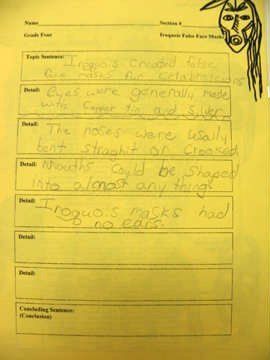 Name Section #
Grade Four Iroquois False Face Masks
Topic Sentence: Iroquois created false
face masks for celebrations
Detail: Eyes were generally made
with copper, tin, and silver.
Detail: The noses were usally
bent straghit or crooked.
Detail: Mouths could be shaped
into almost any thing.
Detail: Iroquois masks had
no ears.
Detail:
Detail:
Concluding Sentence:
(Conclusion)